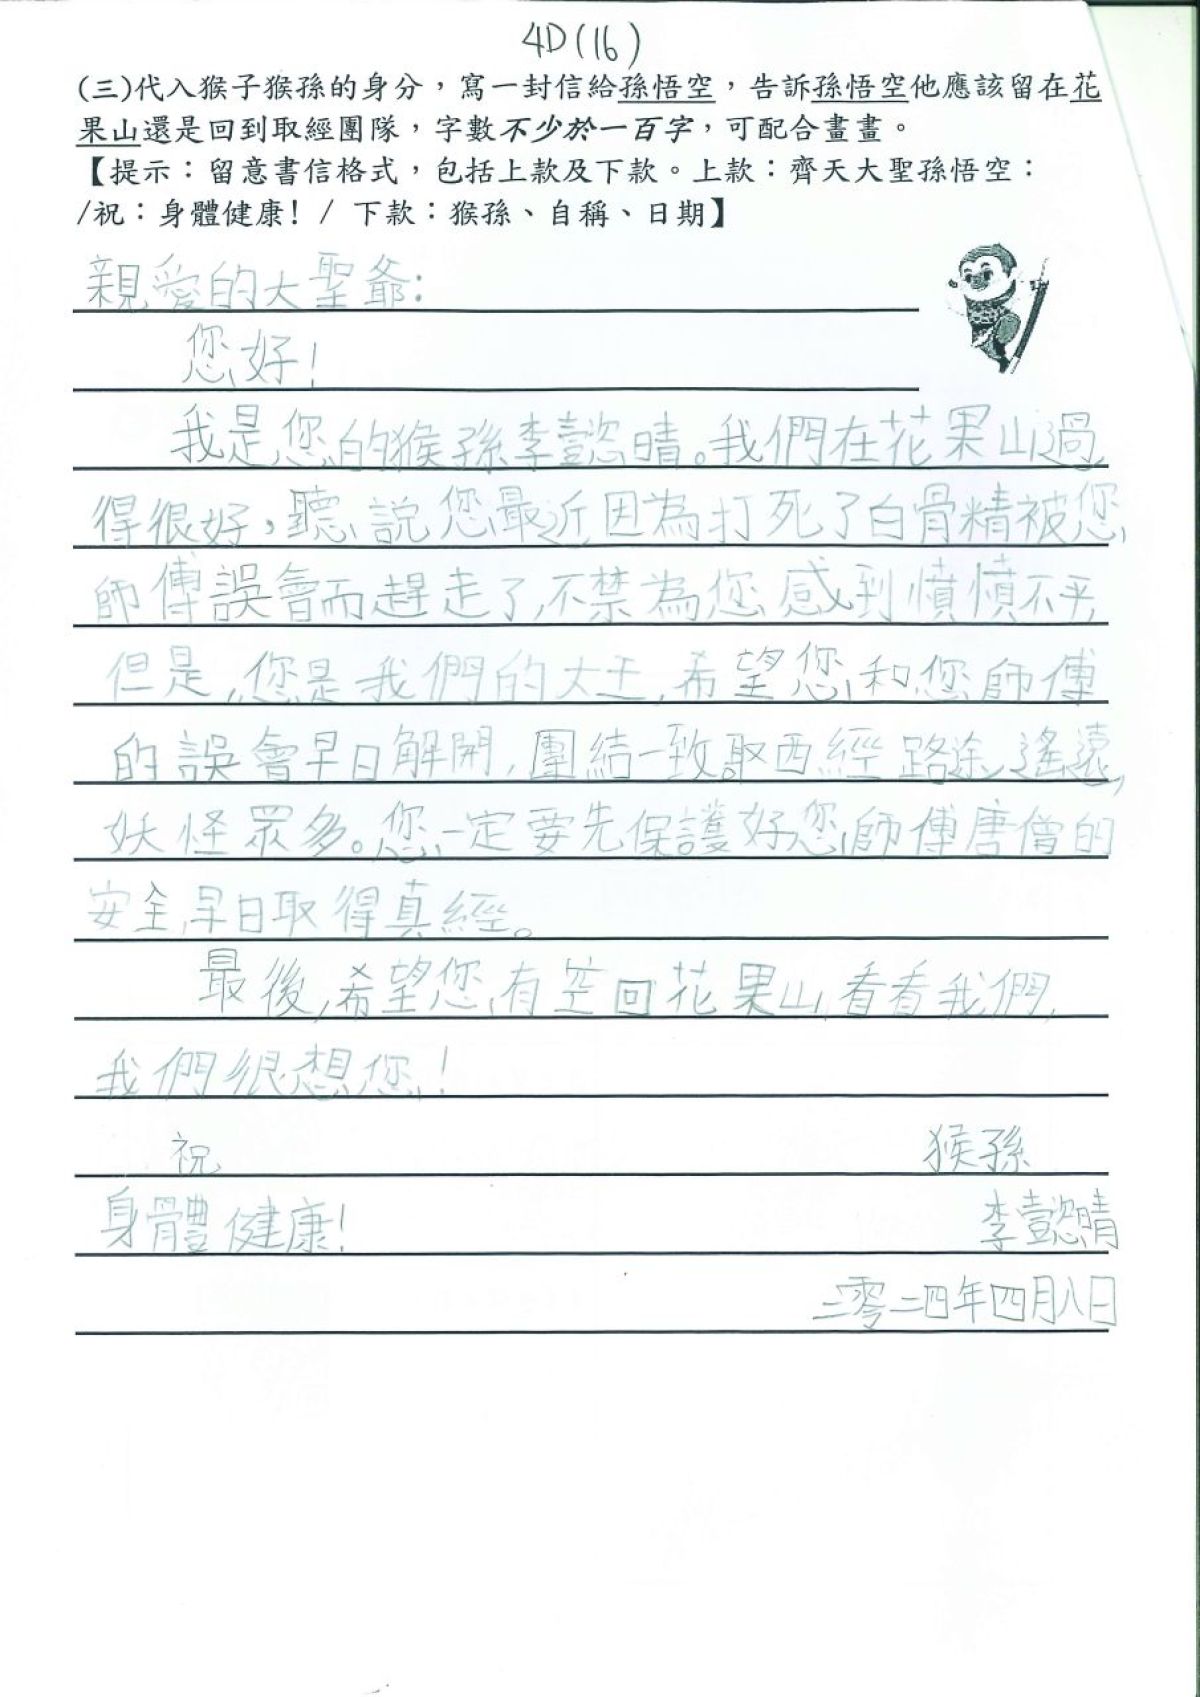 4D(16)
(三)代入猴子猴孫的身分，寫一封信給孫悟空，告訴孫悟空他應該留在花
果山還是回到取經團隊，字數不少於一百字，可配合畫畫。
【提示：留意書信格式，包括上款及下款。上款：齊天大聖孫悟空：
/祝：身體健康! / 下款：猴孫、自稱、日期】
親愛的大聖爺：
您好！
我是您的猴孫李懿晴。我們在花果山過
得很好，聽說您最近因為打死了白骨精被您
師傅誤會而趕走了，不禁為您感到憤憤不平，
但是，您是我們的大王，希望您和您師傅
的誤會早日解開，團結一致取西經路途遙遠，
妖怪眾多。您一定要先保護好您師傅唐僧的
安全，早日取得真經。
最後，希望您有空回花果山看看我們，
我們很想您！
祝 猴孫
身體健康！ 李懿晴
二零二四年四月八日